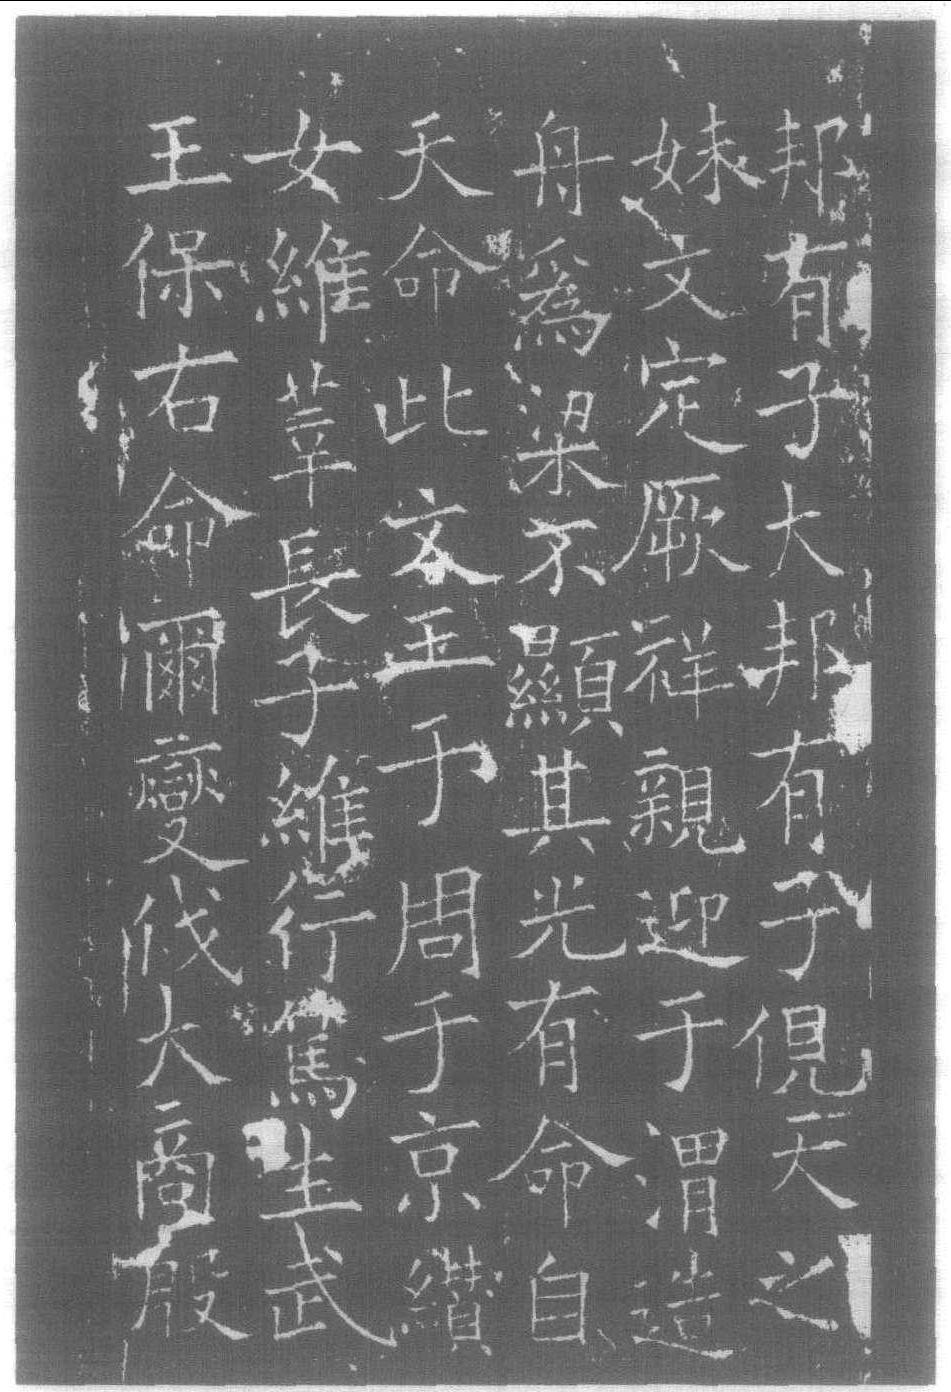 邦有子大邦有子俔天之
妹文定厥祥親迎于渭造
舟爲梁不顯其光有命自
天命此文王于周于京纘
女維莘長子維行篤生武
王保右命爾燮伐大商殷